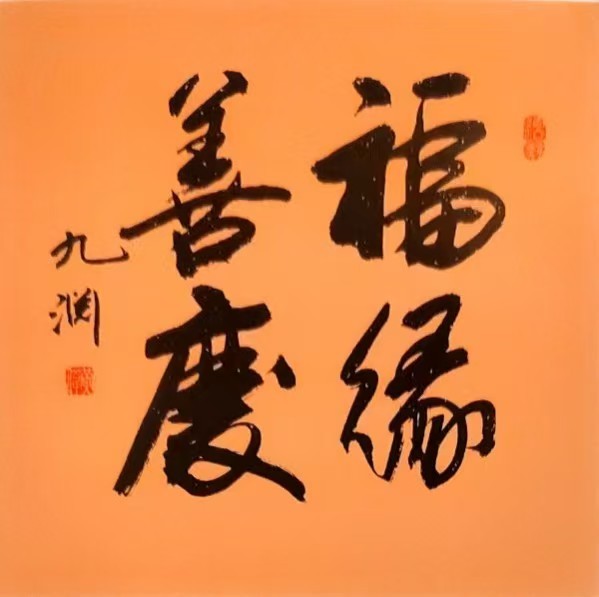 福缘
善庆
九润